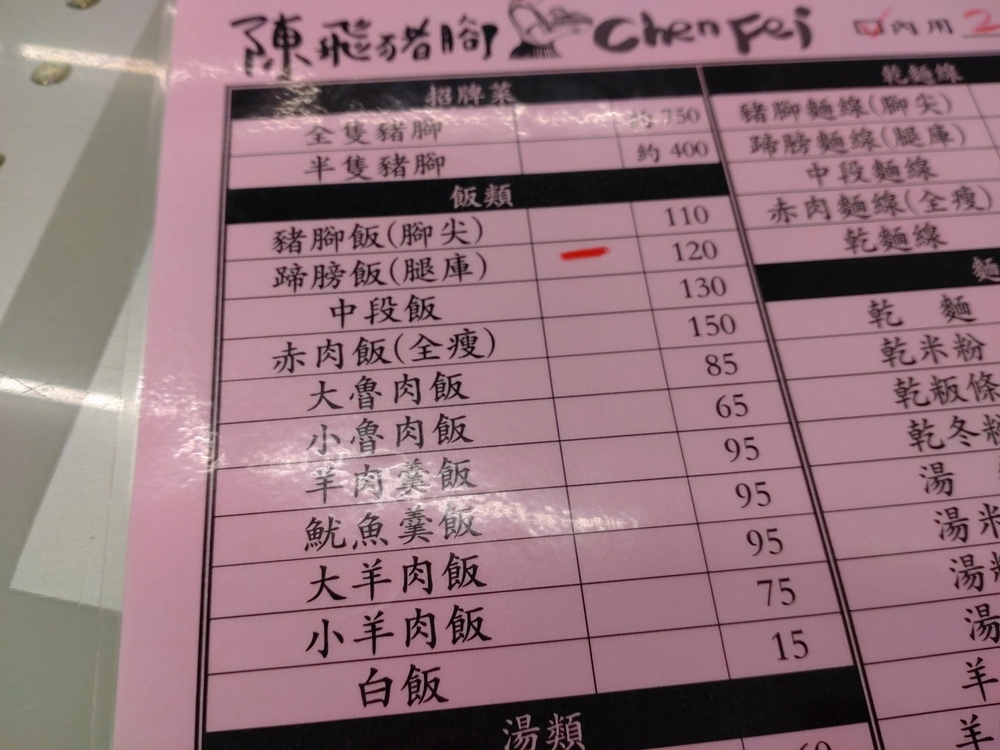 陳飛豬腳 Chen Fei
內用 2
招牌菜
全隻豬腳 約 750
半隻豬腳 約 400
飯類
豬腳飯(腳尖) 110
蹄膀飯(腿庫) 120
中段飯 130
赤肉飯(全瘦) 150
大魯肉飯 85
小魯肉飯 65
羊肉羹飯 95
魷魚羹飯 95
大羊肉飯 95
小羊肉飯 75
白飯 15
湯類
乾麵線
豬腳麵線(腳尖)
蹄膀麵線(腿庫)
中段麵線
赤肉麵線(全瘦)
乾麵線
麵
乾 麵
乾米粉
乾粄條
乾冬粉
湯
湯米
湯
湯
羊
羊